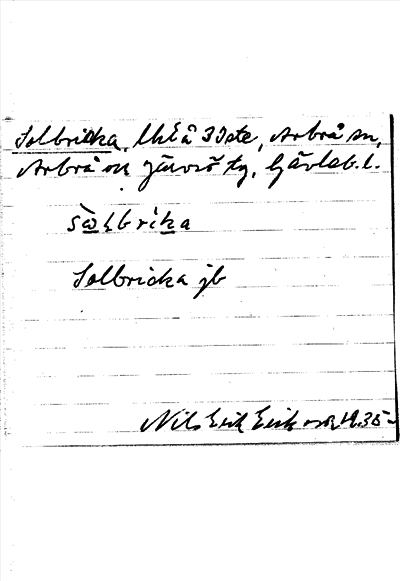 Solbricka, lht å 33 ste, Arbrå sn,
Arbrå o Järvsö tg, Gävleb. l.
sὼlbrika
Solbricka jb
Nils Erik Erikson 1935